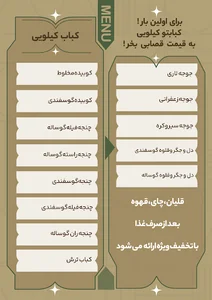 MENU
برای اولین بار!
کبابتو کیلویی
به قیمت قصابی بخر!
جوجه تازی
جوجه زعفرانی
جوجه سیر و کره
دل و جگر و قلوه گوسفندی
دل و جگر و قلوه گوساله
قلیان، چای، قهوه
بعد از صرف غذا
با تخفیف ویژه ارائه می شود
کباب کیلویی
کوبیده مخلوط
کوبیده گوسفندی
چنجه فیله گوساله
چنجه راسته گوساله
چنجه گوسفندی
چنجه فیله گوسفندی
چنجه ران گوساله
کباب ترش